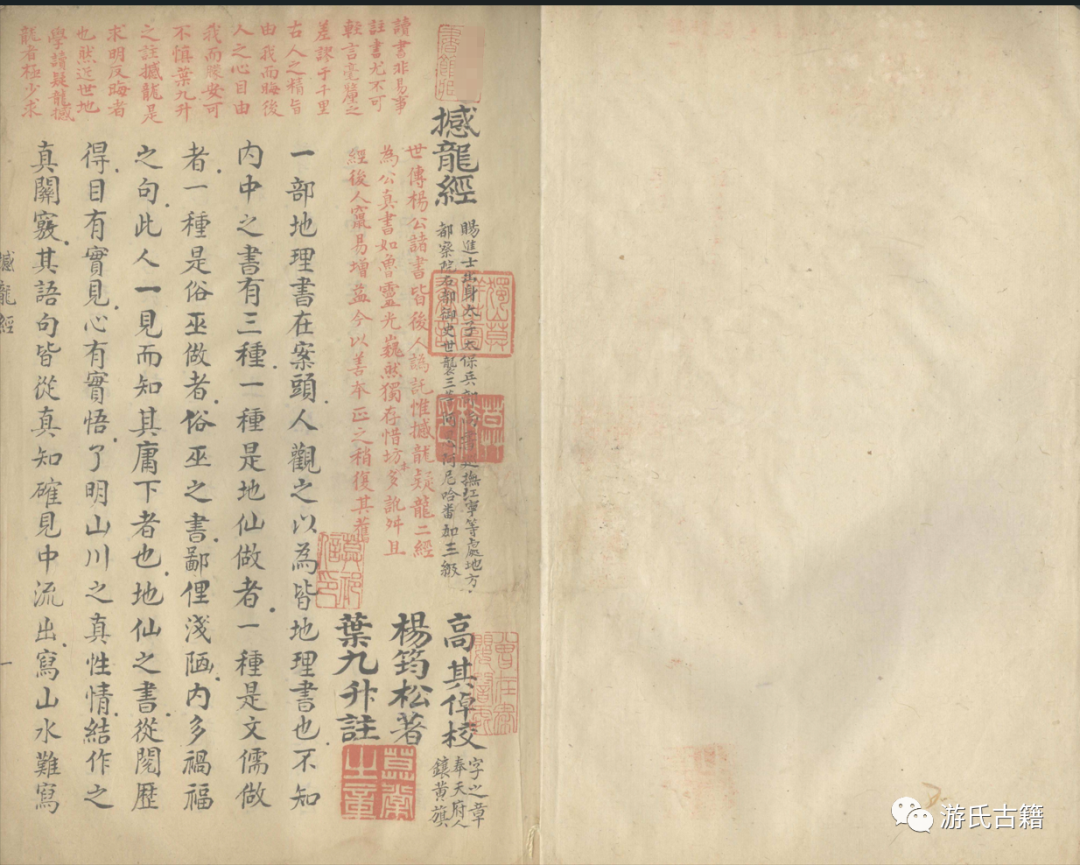 讀書非易事
註書尤不可
輕言毫釐之
差謬于千里
古人之精旨
由我而晦後
人之心目由
我而朦安可
不慎葉九升
之註撼龍是
求明反晦者
也然近世地
學諸疑龍撼
龍者極少求
撼龍經
賜進士出身太子太保兵部
撫江寧等處地方
都察院右都御史世襲三等
阿尼哈番加三級
高其倬校
字之章
奉天府人
鑲黃旗
楊筠松著
葉九升註
世傳楊公諸書皆後人譌託惟撼龍疑龍二經
為公真書如魯靈光巍然獨存惜坊本多訛舛且
經後人竄易增益今以善本正之稍復其舊
一部地理書在案頭人觀之以為皆地理書也不知
內中之書有三種一種是地仙做者一種是文儒做
者一種是俗巫做者俗巫之書鄙俚淺陋內多禍福
之句此人一見而知其庸下者也地仙之書從閱歷
得目有實見心有實悟了明山川之真性情結作之
真關竅其語句皆從真知確見中流出寫山水難寫
撼龍經
一
游氏古籍